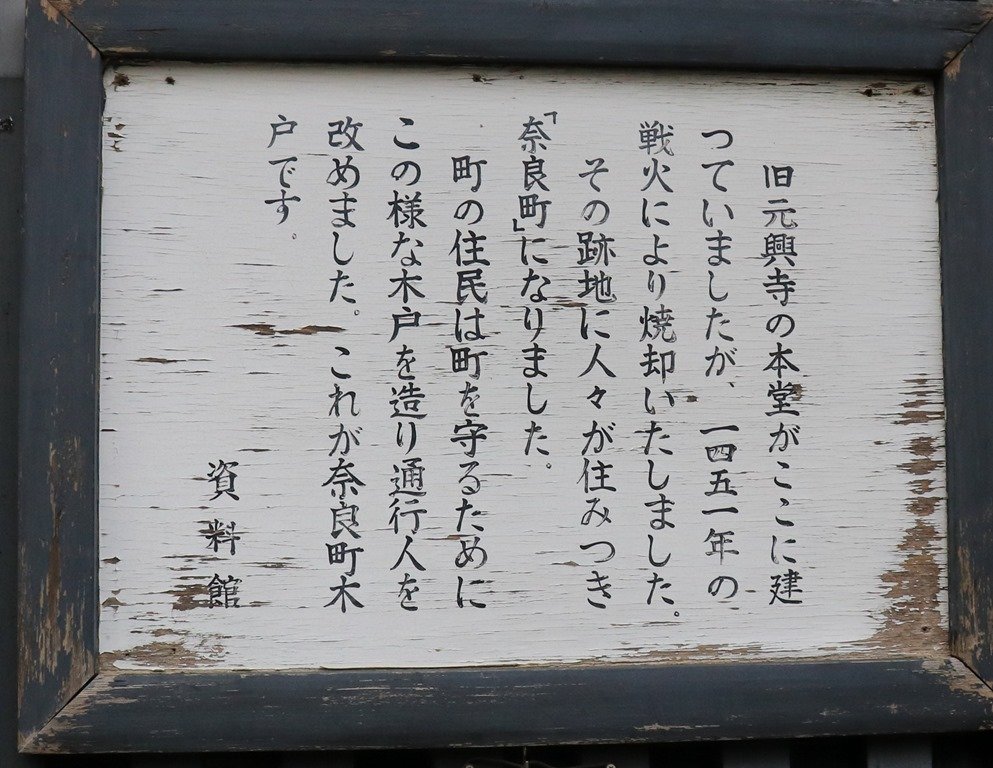 旧元興寺の本堂がここに建
っていましたが、一四五一年の
戦火により焼却いたしました。
その跡地に人々が住みつき
「奈良町」になりました。
町の住民は町を守るために
この様な木戸を造り通行人を
改めました。これが奈良町木
戸です。
資料館